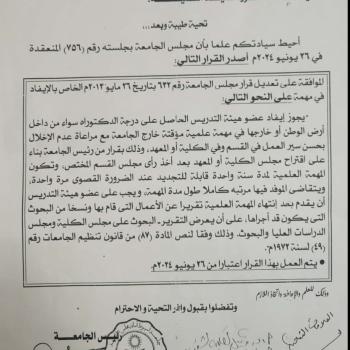 تحية طيبة وبعد...
أحيط سيادتكم علما بأن مجلس الجامعة بجلسته رقم (٧٥٦) المنعقدة
في ٢٦ يونيو ٢٠٢٤م أصدر القرار التالي:
الموافقة على تعديل قرار مجلس الجامعة رقم ٦٣٢ بتاريخ ٢٦ مايو ٢٠١٣م الخاص بالإيفاد
في مهمة على النحو التالي:
-يجوز إيفاد عضو هيئة التدريس الحاصل على درجة الدكتوراه سواء من داخل
أرض الوطن أو خارجها في مهمة علمية مؤقتة خارج الجامعة مع مراعاة عدم الإخلال
بحسن سير العمل في القسم وفي الكلية أو المعهد، وذلك بقرار من رئيس الجامعة بناء
على اقتراح مجلس الكلية أو المعهد بعد أخذ رأى مجلس القسم المختص، وتكون
المهمة العلمية لمدة سنة واحدة قابلة للتجديد عند الضرورة القصوى مرة واحدة،
ويتقاضى الموفد فيها مرتبه كاملا طول مدة المهمة، ويجب على عضو هيئة التدريس
أن يقدم بعد إنتهاء المهمة العلمية تقريرا عن الأعمال التى قام بها ونسخا من البحوث
التى يكون قد أجراها، على أن يعرض التقرير. البحوث على مجلس الكلية ومجلس
الدراسات العليا والبحوث. وذلك وفقا لنص المادة (٨٧) من قانون تنظيم الجامعات رقم
(٤٩) لسنة ١٩٧٢م.
• يتم العمل بهذا القرار اعتبارا من ٢٦ يونيو ٢٠٢٤م.
وذلك للعلم والإحاطة واتخاذ اللازم
وتفضلوا بقبول وافر التحية و الاحترام
رئيس الجامعة